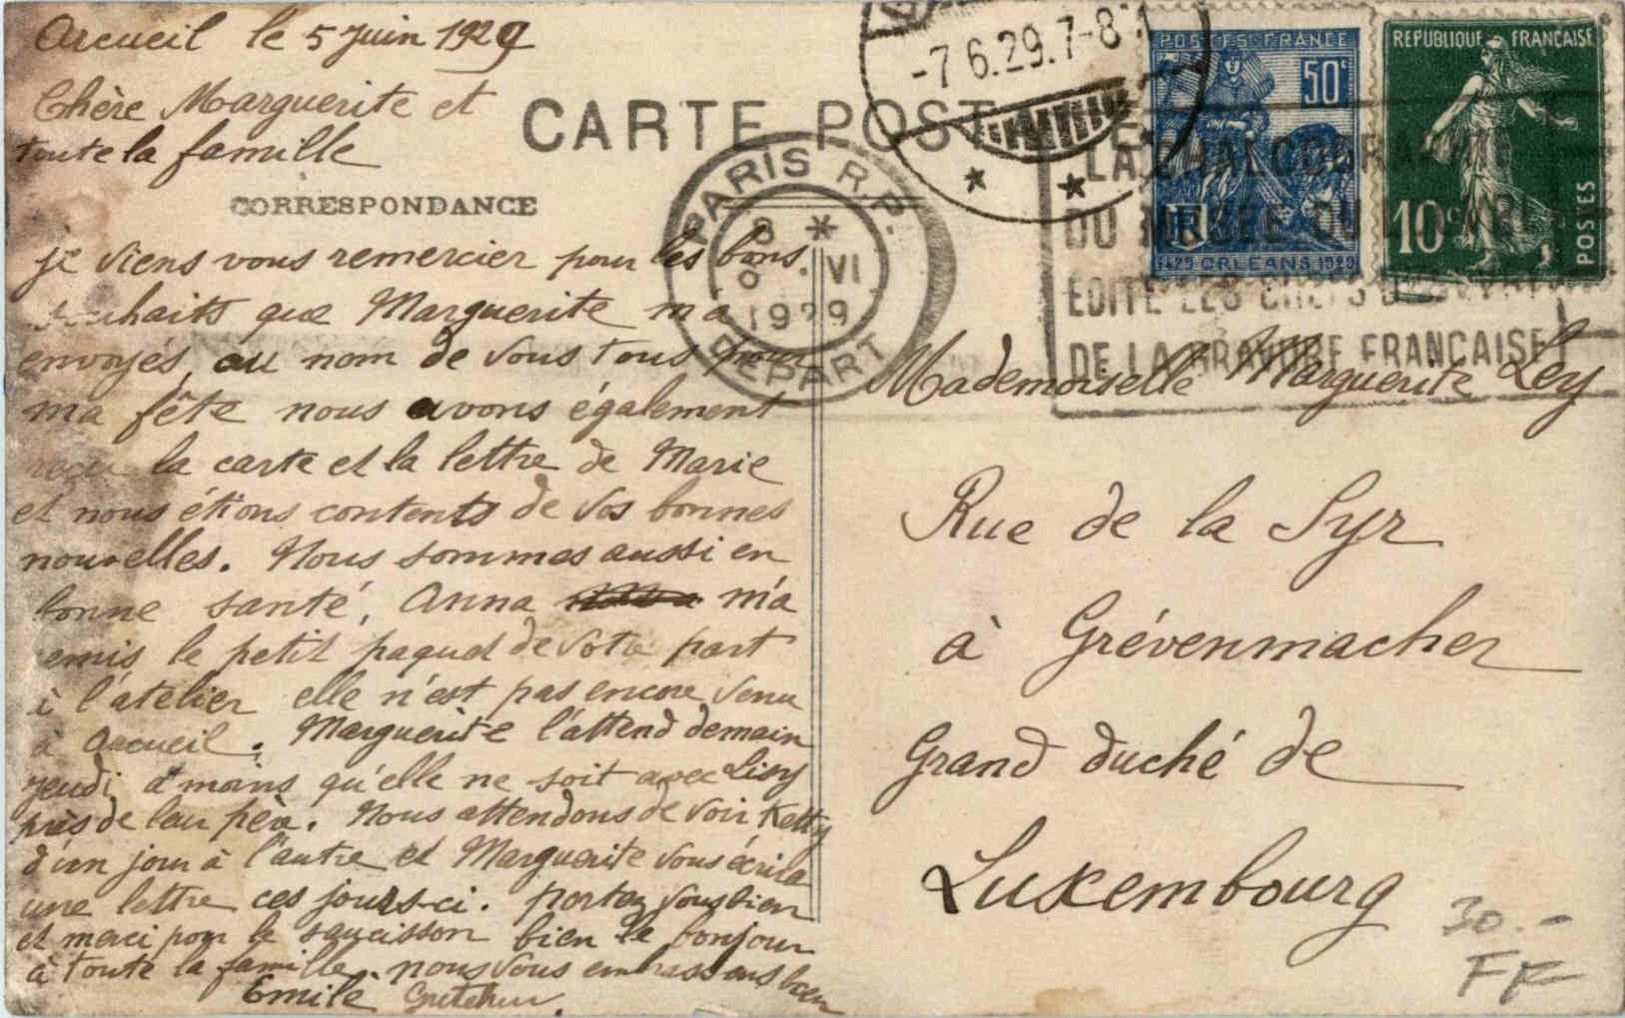 Arcueil le 5 Juin 1929
Chère Marguerite et
toute la famille
CARTE POST
CORRESPONDANCE
je viens vous remercier pour les bons
souhaits que Marguerite m'a
envoyés, au nom de vous tous pour
ma fête nous avons également
reçu la carte et la lettre de Marie
et nous étions contents de vos bonnes
nouvelles. Nous sommes aussi en
bonne santé, Anna m'a
remis le petit paquet de votre part
à l'atelier elle n'est pas encore venu
à Arcueil. Marguerite l'attend demain
jeudi à moins qu'elle ne soit avec Lisy
près de leur père. Nous attendons de voir Ketty
d'un jour à l'autre et Marguerite vous écrira
une lettre ces jours-ci. portez vous bien
et merci pour le saucisson bien le bonjour
à toute la famille. nous vous embrassons bien
Emile
-7.6.29.7-8
PARIS R.P.
8 *
VI
1929
DEPART
POSTES FRANCE
50c
1429 ORLEANS 1929
REPUBLIQUE FRANÇAISE
10c
POSTES
LA CHALCOGRA
DU MUSÉE DU LOUVRE
EDITE LES CHEFS D'ŒUVRE
DE LA GRAVURE FRANÇAISE
Mademoiselle Marguerite Ley
Rue de la Syr
à Grévenmacher
Grand duché de
Luxembourg
30.-
FF